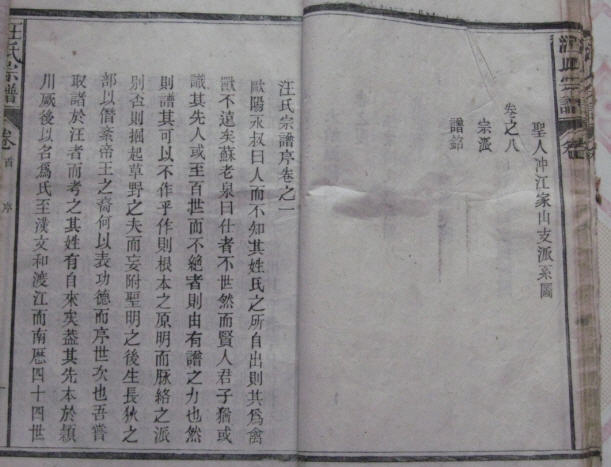 汪氏宗譜
聖人冲江家山支派系圖
卷之八
宗派
譜銘
汪氏宗譜序卷之一
歐陽永叔曰人而不知其姓氏之所自出則其為禽
獸不遠矣蘇老泉曰仕者不世然而賢人君子猶或
識其先人或至百世而不絕者則由有譜之力也然
則譜其可以不作乎作則根本之原明而脉絡之派
別否則掘起草野之夫而妄附聖明之後生長狄之
部以僭系帝王之裔何以表功德而序世次也吾嘗
取諸於汪者而考之其姓有自來矣葢其先本於潁
川厥後以名爲氏至漢文和渡江而南厯四十四世
汪氏宗譜
卷首
序